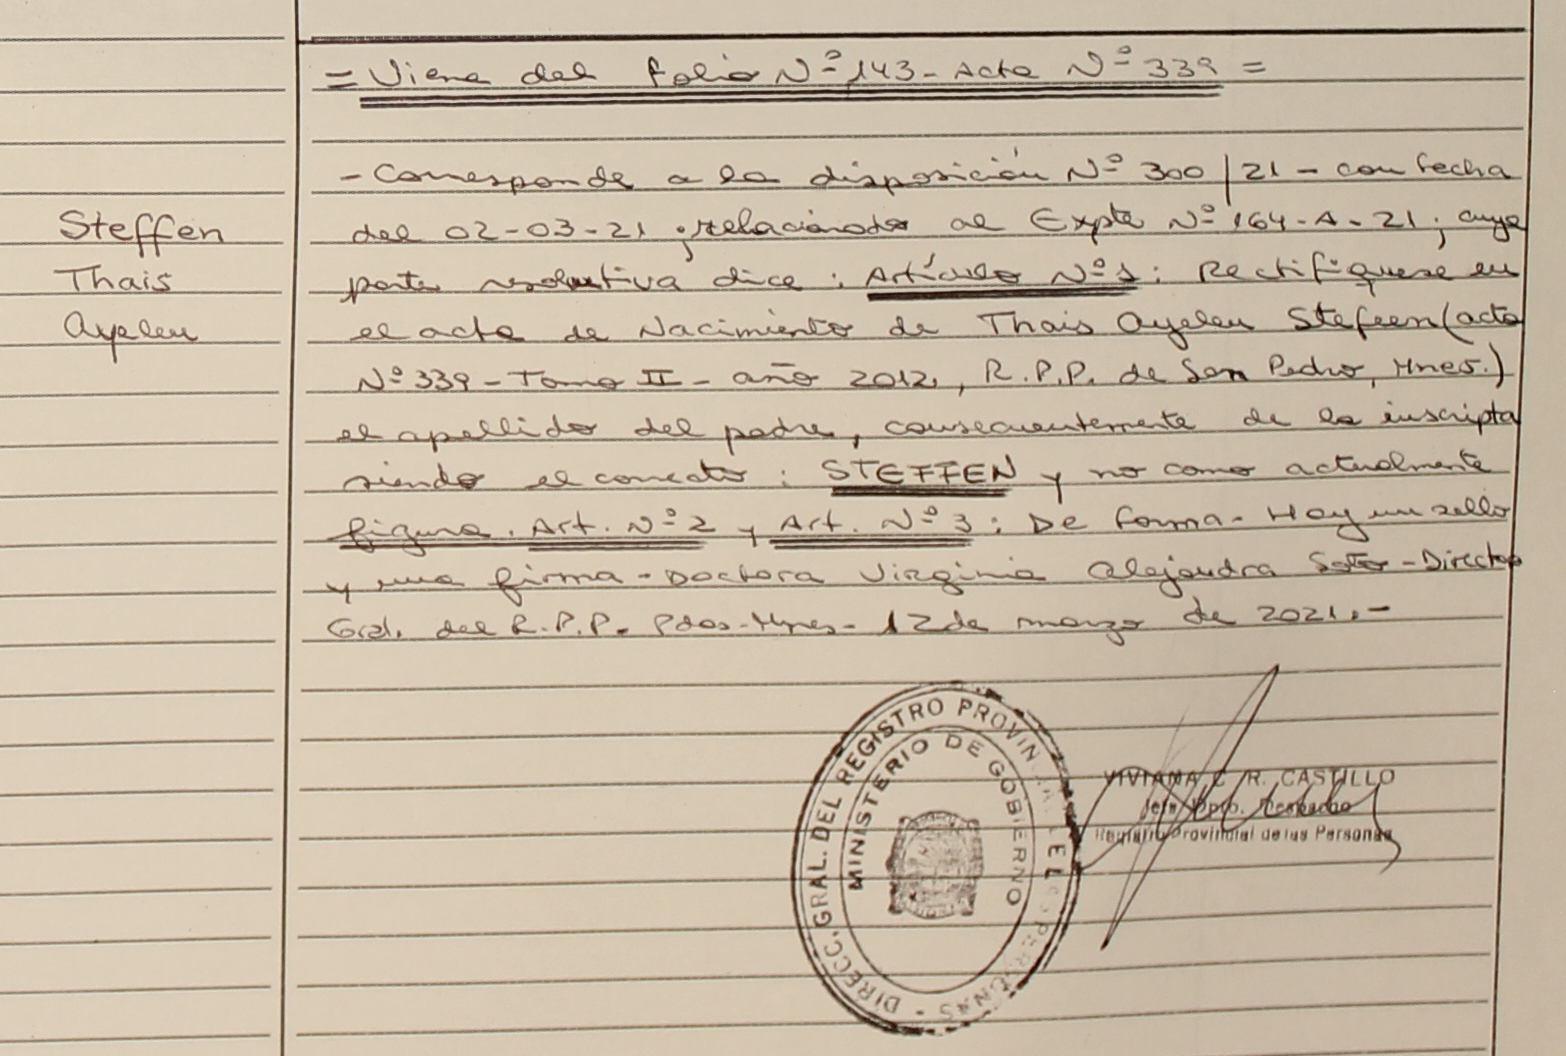 = Viene del folio Nº 143 - Acta Nº 339 =
- Corresponde a la disposición Nº 300/21 - con fecha
Steffen
del 02-03-21, relacionado al Expte Nº 164-A-21; cuya
Thais
parte resolutiva dice: Artículo Nº 1: Rectifíquese en
Ayelen
el acta de Nacimiento de Thais Ayelen Stefeen (acta
Nº 339 - Tomo II - año 2012, R.P.P. de San Pedro, Mnes.)
el apellido del padre, consecuentemente de la inscripta
siendo el correcto: STEFFEN y no como actualmente
figura. Art. Nº 2 y Art. Nº 3: De forma - Hay un sello
y una firma - Doctora Virginia Alejandra Soto - Directora
Gral. del R.P.P. Pdas - Mnes - 12 de marzo de 2021.-
DIRECC. GRAL. DEL REGISTRO PROVINCIAL DE LAS PERSONAS
MINISTERIO DE GOBIERNO
VIVIANA C. R. CASTILLO
Jefa Dpto. Despacho
Registro Provincial de las Personas